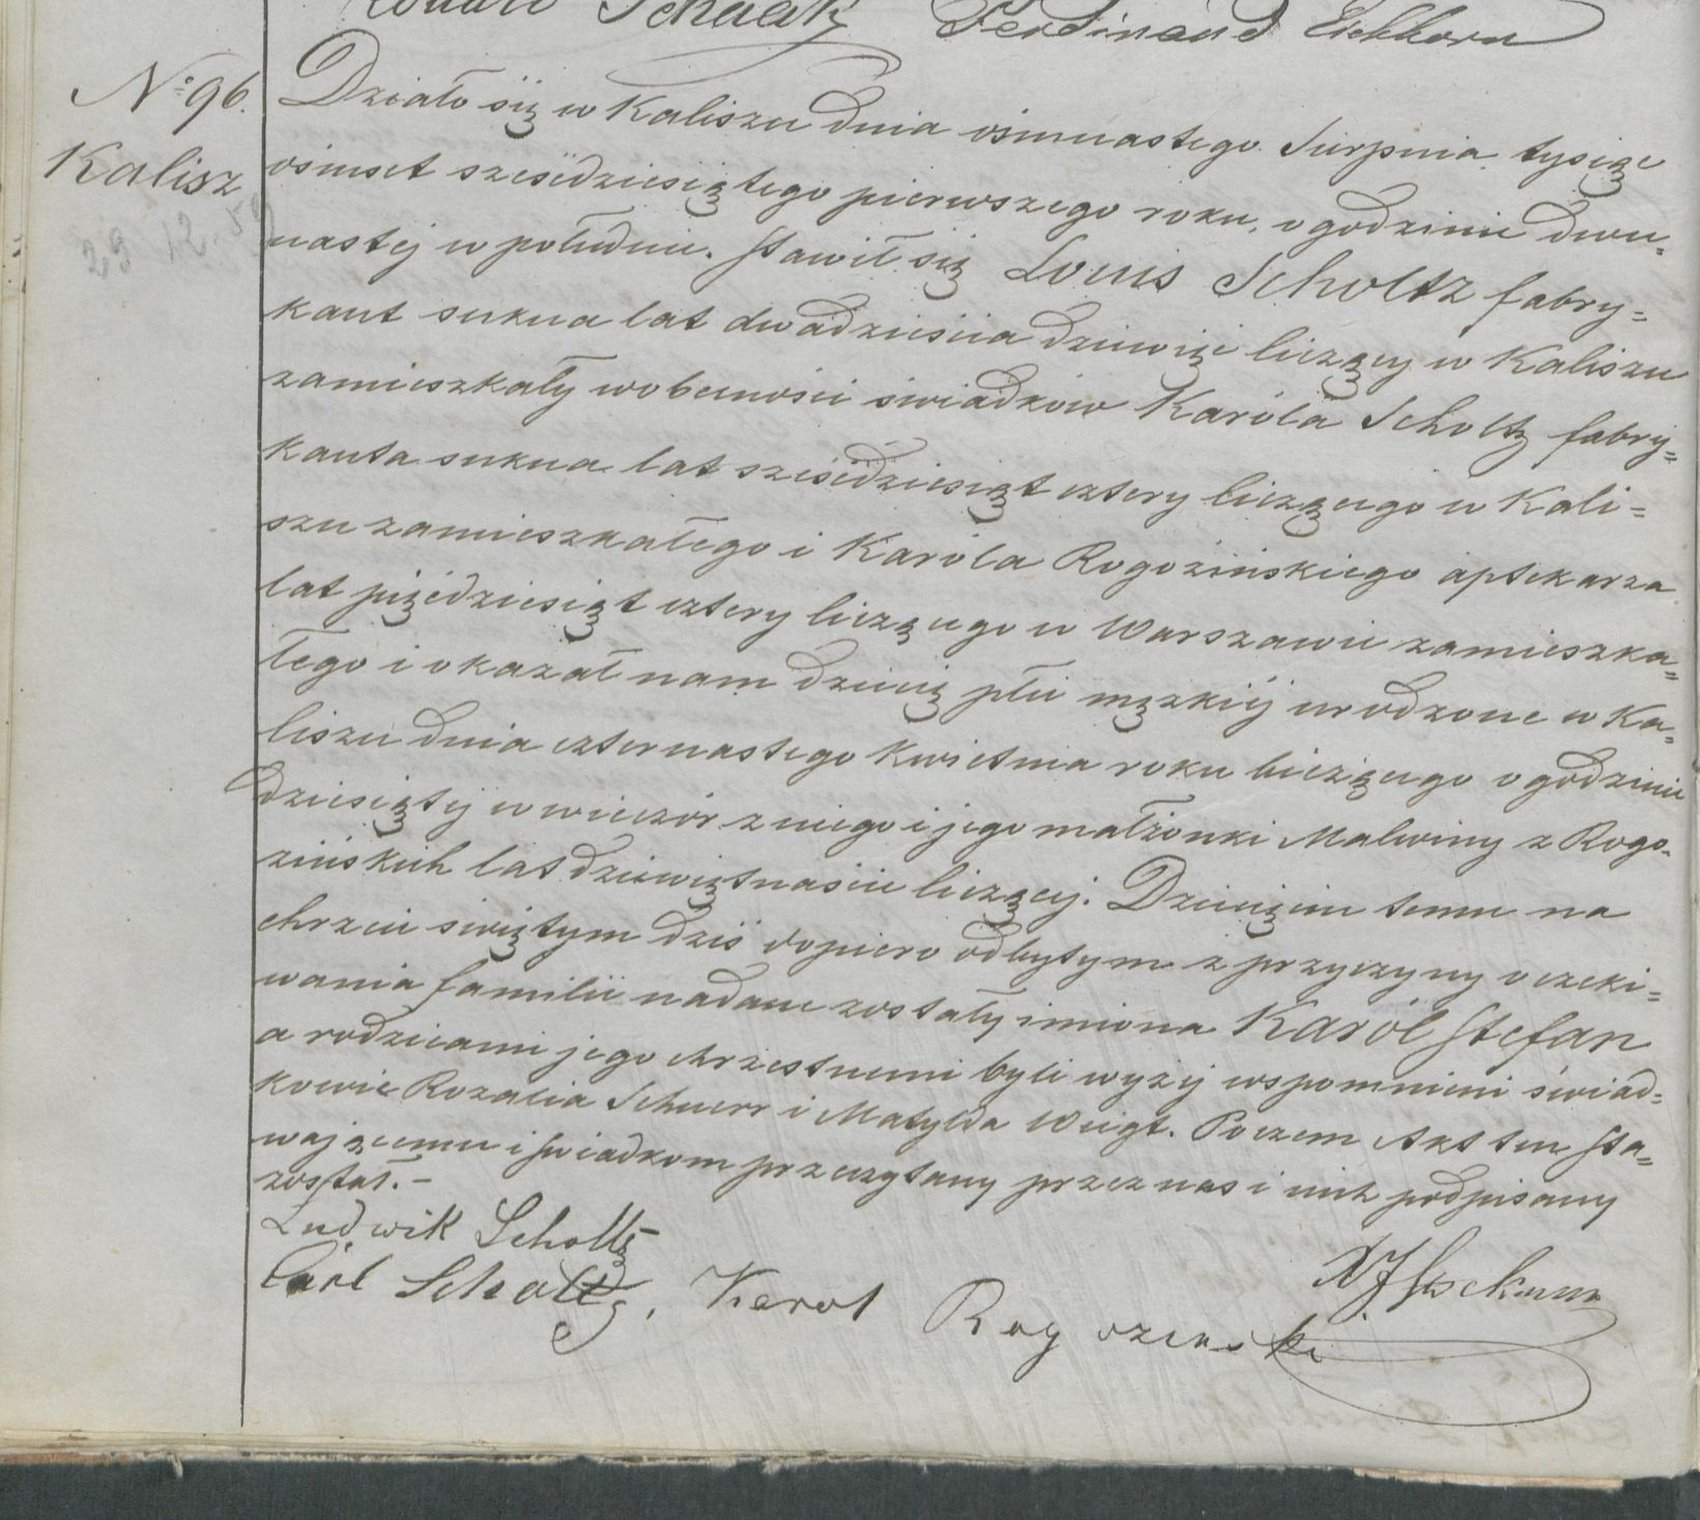 Schack Ferdinand Eichhorn
No. 96.
Kalisz
29 12.
Działo się w Kaliszu dnia ośmnastego Sierpnia tysiąc
ośmset sześćdziesiątego pierwszego roku, o godzinie dwu=
nastej w południe. Stawił się Louis Scholtz fabry=
kant sukna lat dwadzieścia dziewięć liczący w Kaliszu
zamieszkały w obecności świadków Karóla Scholtz fabry=
kanta sukna lat sześćdziesiąt cztery liczącego w Kali=
szu zamieszkałego i Karóla Rogozińskiego aptekarza
lat pięćdziesiąt cztery liczącego w Warszawie zamieszka=
łego i okazał nam dziecię płci męzkiéj urodzone w Ka=
liszu dnia czternastego Kwietnia roku bieżącego o godzinie
dziesiątej w wieczór z niego i jego małżonki Malwiny z Rogo=
zińskich lat dziewiętnaście liczącej. Dziecięciu temu na
chrzcie świętym dziś dopiero odbytym z przyczyny oczeki=
wania familii nadane zostały imiona Karól Stefan
a rodzicami jego chrzestnemi byli wyżej wspomnieni świad=
kowie Rozalia Scheerr i Matylda Weigt. Poczem Akt ten sta=
wającemu i świadkom przeczytany przez nas i nich podpisany
został. –
Ludwik Scholtz
Carl Scholtz, Karol Rogozinski